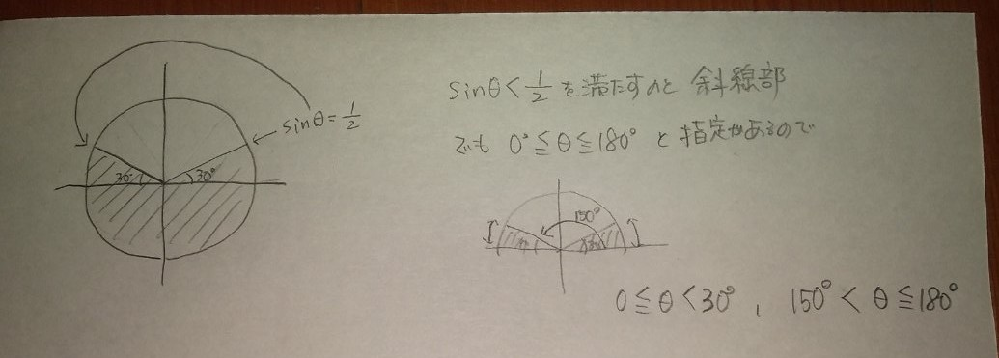 sinθ=1/2
30°
30°
sinθ<1/2 を満たすのと 斜線部
でも 0°≦θ≦180° と指定があるので
150°
0≦θ<30°, 150°<θ≦180°